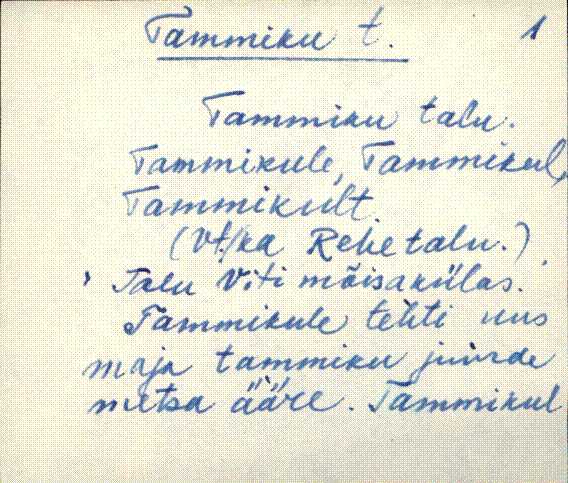 Tammiku t. 1
Tammiku talu.
Tammikule, Tammikul,
Tammikult
(Vt./ka Rehetalu.)
Talu Viti mõisakülas.
Tammikule tehti uus
maja tammiku juurde
metsa ääre. Tammikul